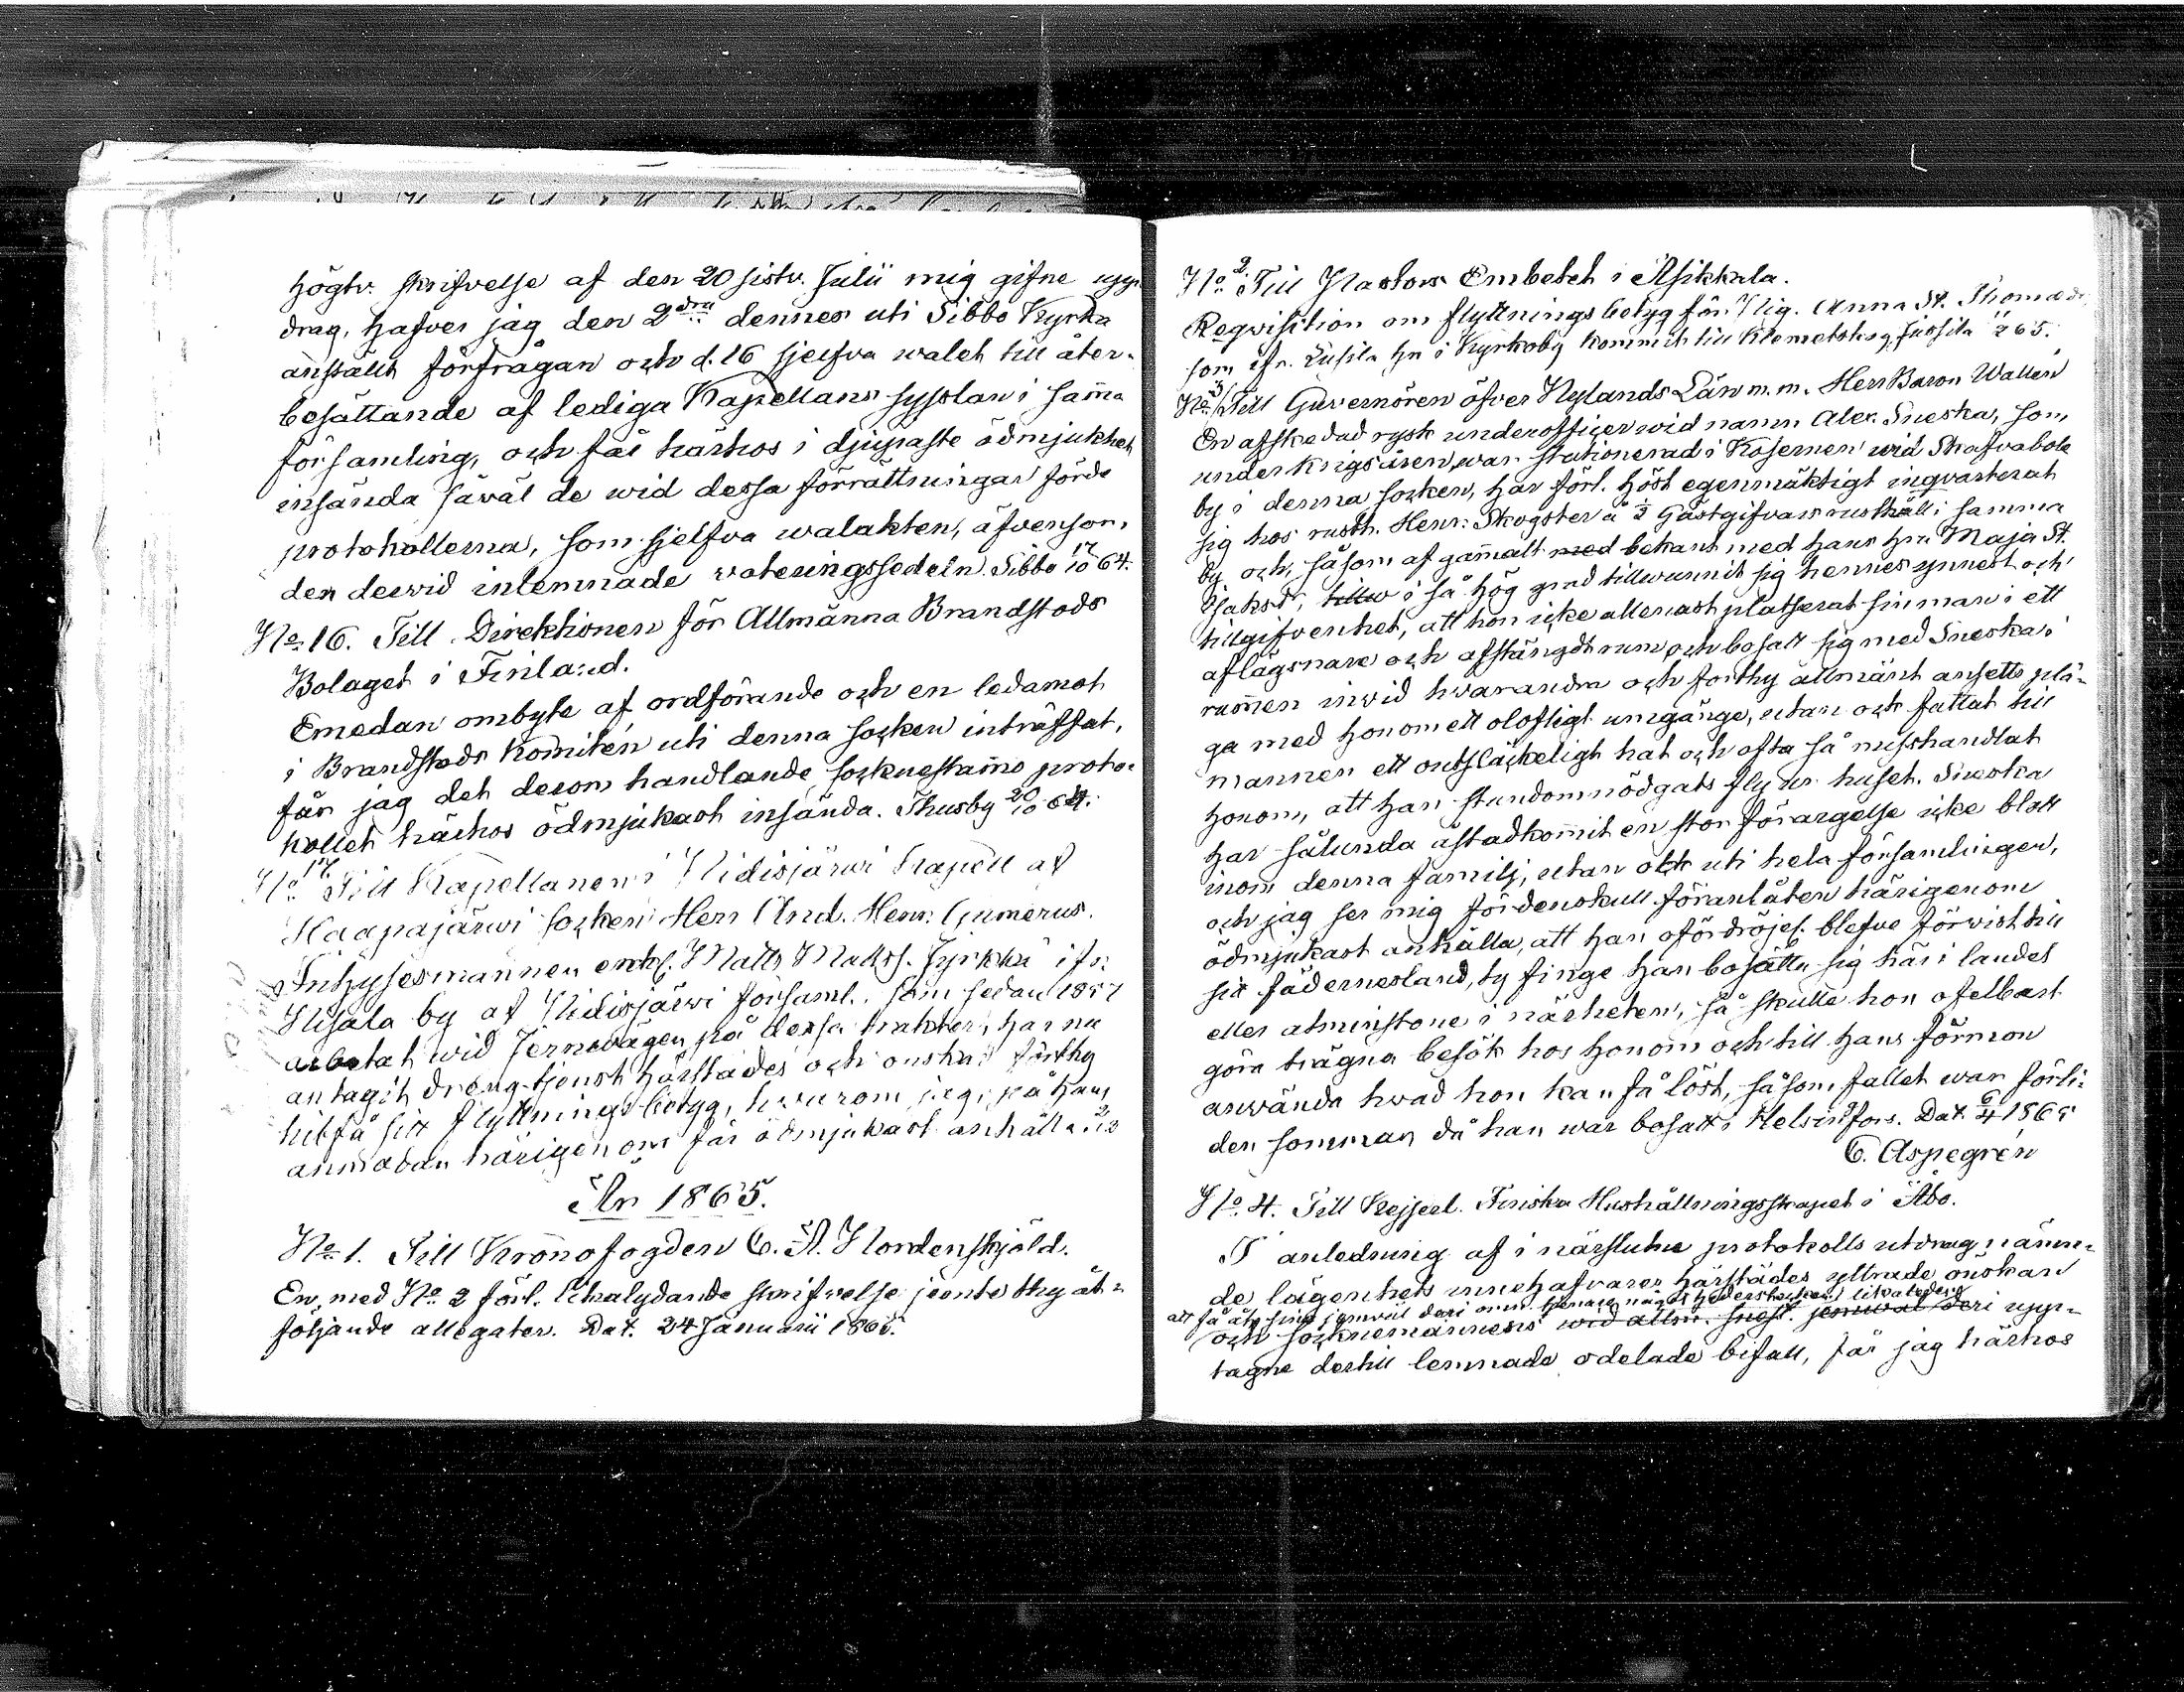 högtv. skrifvelse af den 20 sistv. Julii mig gifne upp
drag, hafver jag den 2dra dennes uti Sibbo Kyrka
anstält förfrågan och d. 16 sjelfva walet till åter-
besättande af lediga Kapellans sysslan i samma
församling, och får härhos i djupaste ödmjukhet
insända såwäl de wid dessa förrättningar förde
protokollerna, som sjelfva walakten, äfvensom
den derwid inlemnade voteringssedeln. Sibbo 17/10 64.
No 16. Till Direktionen för Allmänna Brandstods
Bolaget i Finland.
Emedan ombyte af ordförande och en ledamot
i Brandstods Komitén uti denna socken inträffat,
får jag det derom handlande sockenstämmo proto-
kollet härhos ödmjukast insända. Thusby 20/10 64.
No 17. Till Kapellanen i Nidisjärwi Kapell af
Haapajärwi socken Herr And. Henr. Gumerus.
Inhysesmannen enkl. Matts Matss. Jyrkkä ifr.
by af Nidisjärwi församl. som sedan 1857
arbetat wid Jernvägen på dessa trakter, har nu
antagit drengtjenst härstädes och önskar förthy
hitfå sitt flyttningsbetyg, hwarom jag på hans
anmodan härigenom får ödmjukast anhålla
År 1865.
No 1. Till Kronofogden C. A. Nordenskjöld.
En med No 2 förl. likalydande skrifvelse jemte thy åt-
följande allegater. Dat. 24 Januarii 1865.
No 2. Till Pastors Embetet i Asikkala.
Reqvisition om flyttningsbetyg för Pig. Anna St. Thomædr
som ifr. hn i Kyrkoby kommit till 65.
No 3/ Till Guvernören öfver Nylands Län m. m. Herr Baron Wallén
En afskedad rysk underofficer wid namn Alex. Sneska, som
under krigsåren war stationerad i Kasernen wid Skafvabole
by i denna socken, har förl. höst egenmäktigt inqvarterat
sig hos rusth. Henr. Skogster å 1/2 Gästgifvars rusthåll i samma
by och, såsom af gammalt med bekant med hans hru Maja St.
Isaksd., tillw i så hög grad tillwunnit sig hennes ynnest och
tillgifvenhet, att hon icke allenast platserat sin man i ett
aflägsnare och afstängdt rum och bosatt sig med Sneska i
rummen inwid hwarandra och förthy allmänt ansetts plä-
ga med honom ett olofligt umgänge, utan och fattat till
mannen ett outsläckeligt hat och ofta så misshandlat
honom, att han stundom nödgats fly ur huset. Sneska
har sålunda åstadkommit en stor förargelse icke blott
inom denna familj, utan ock uti hela församlingen,
och jag ser mig fördenskull föranlåten härigenom
ödmjukast anhålla, att han ofördröjel. blefve förwist till
sitt fädernesland, ty finge han bosätta sig här i landet
eller åtminstone i närheten, så skulle hon ofelbart
göra trägna besök hos honom och till hans förmon
använda hwad hon kan få löst, såsom fallet war förli-
den sommar då han war bosatt i Helsingfors. Dat. 6/4 1865
C. Aspegrén
No 4. Till Kejserl. Finska Hushållningssällskapet i Åbo.
I anledning af i närslutne protokolls utdrag nämn-
de lägenhets innehafvares härstädes yttrade önskan
att få åt sina
och sockenemännens wid allm. jemwäl deri upp-
tagne dertill lemnade odelade bifall, får jag härhos